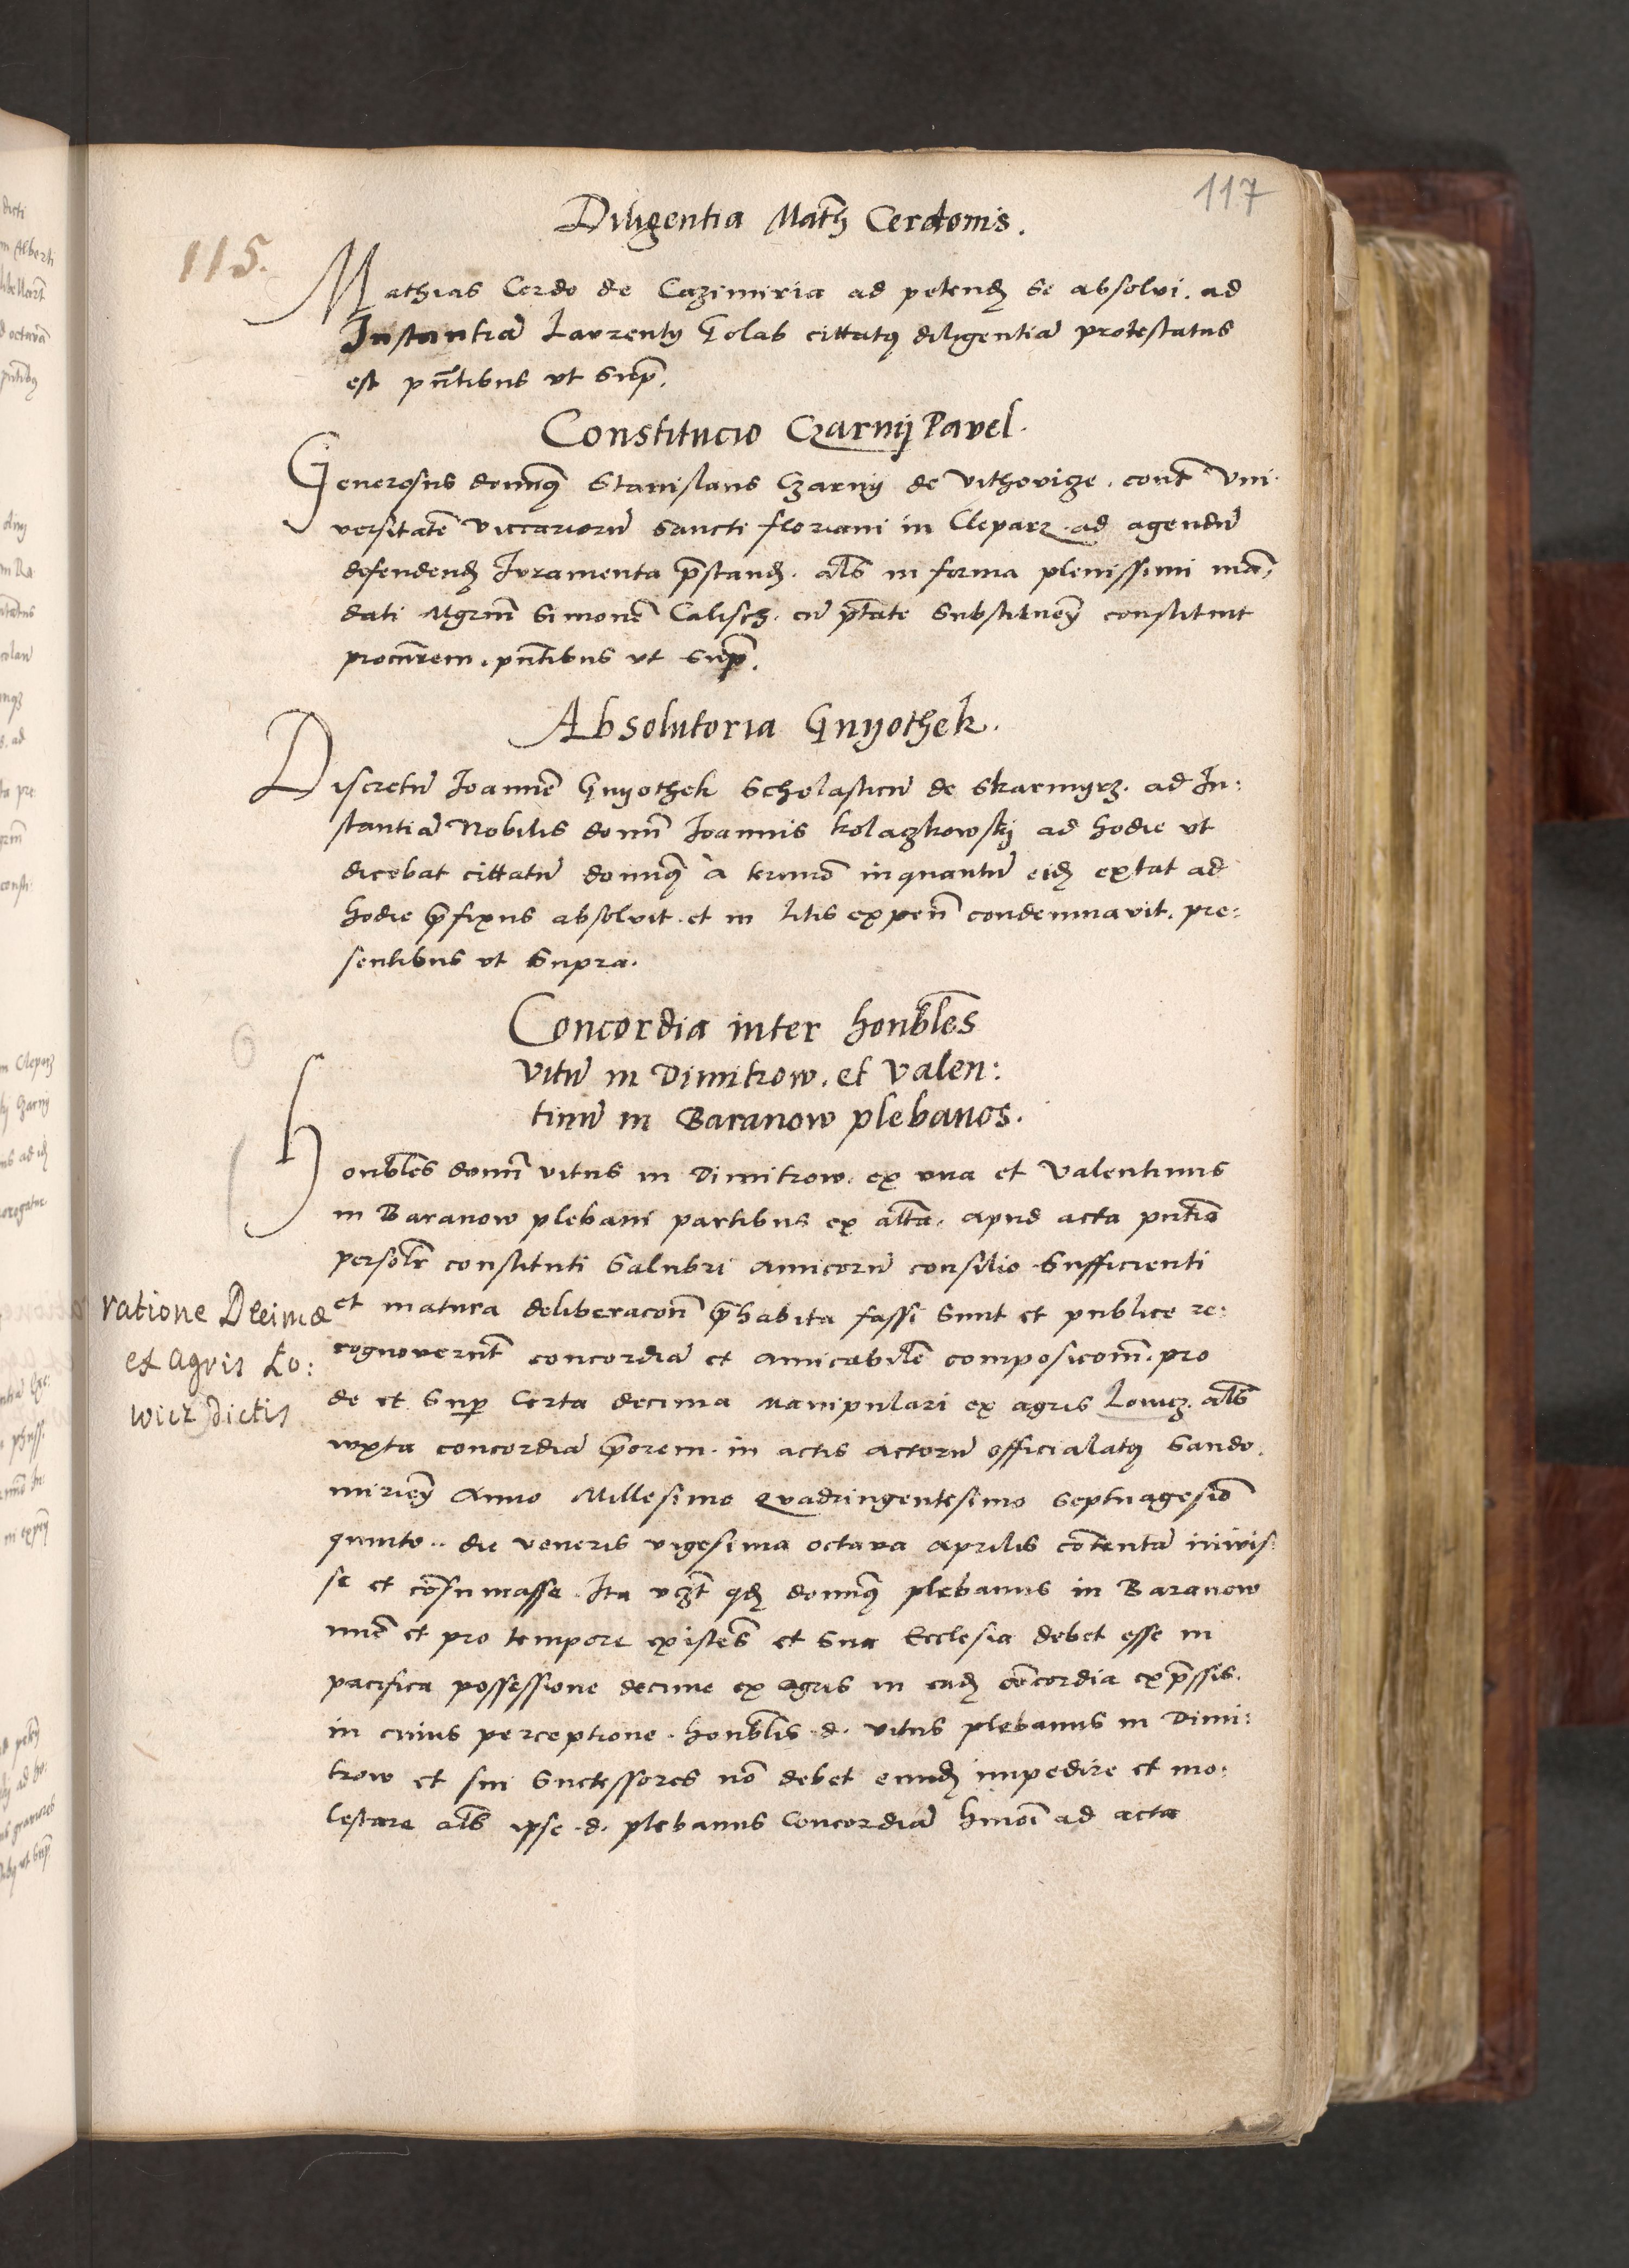 117
115.
Diligentia Math Cerdonis.
Mathias Cerdo de Cazimiria ad petend se absolvi. ad
Instantiā Laurentij Golab cittatꝯ diligentiā protestatus
est pn̄tibus ut sup.
Constitucio Czarnij Pavel.
Generosus domnꝯ Stanislaus Czarnij de Vithovicze. cont Uni
versitatē viccariorū sancti floriani in Cleparz. ad agendū
defendend Iuramenta p̄stand. als in forma plenissimi mā,
dati Mgrum Simonē Calisch. cū ptate substituen constituit
procurem. pn̄tibus ut sup.
Absolutoria Gnyothek.
Discretū Joannē Gnyothek Scholasticū de Skarmyrz. ad In:
stantiā Nobilis domni Joannis kolaczkowskij ad hodie ut
dicebat cittatū domnꝯ à termō inquantū eid extat ad
hodie p̄fixus absolvit. et in litis expen̄ condemnavit. pre:
sentibus ut supra.
Concordia inter honbles
vitū in Dimitrow. et valen:
tinū in Baranow plebanos.
Honbles domni vitus in Dimitrow. ex una et Valentinus
in Baranow plebani partibus ex alta. apud acta pn̄tia
persolr constituti salubri amicorū consilio sufficienti
et matura deliberacon̄ p̄habita fassi sunt et publice re:
cognoverūt concordiā et amicabilē composicom̄. pro
de et sup certa decima manipulari ex agris Lowicz. als
iuxta concordiā p̄orem. in actis actorū officialatꝯ Sando.
mirien Anno Millesimo Quadringentesimo septuagesiō
quinto.. die veneris vigesima octava aprilis cōtentā inivis:
se et cōsumasse. Ita vczt qd domnꝯ plebanus in Baranow
nūc et pro tempore existēs et sua Ecclesia debet esse in
pacifica possessione decime ex agris in ead cōcordia exp̄ssis.
in cuius perceptione. honblis. d. vitus plebanus in Dimi:
trow et sui suctessores nō debet eund impedire et mo:
lestare als ipse. d. plebanus Concordiā hmōi ad acta
ratione Decimæ
ex agris Lo:
wicz dictis